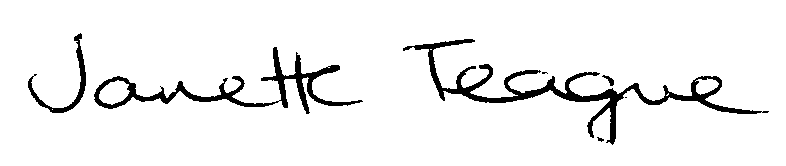 Janette Teague